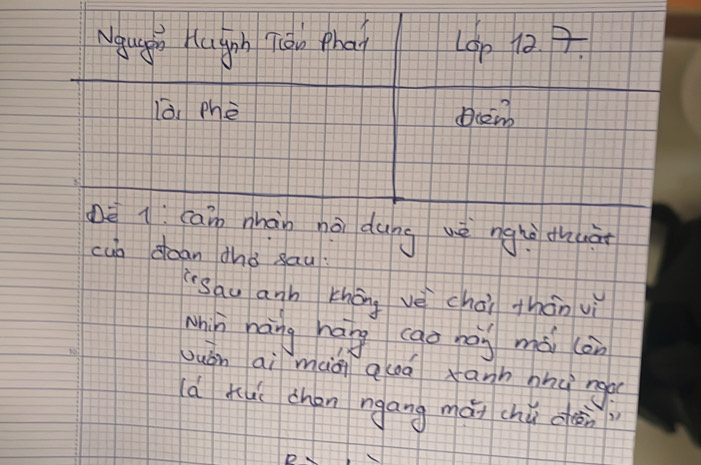 Nguyễn Huỳnh Tiến Phát
Lớp 12.7.
lời phê
Điểm
Đề 1: cảm nhận nội dung về nghệ thuật
của đoạn thơ sau:
"Sau anh không về chơi thôn vĩ
Nhìn nắng hàng cao nắng mới lên
Vườn ai mướt quá xanh như ngọc
lá trúc chan ngang mặt chữ điền"